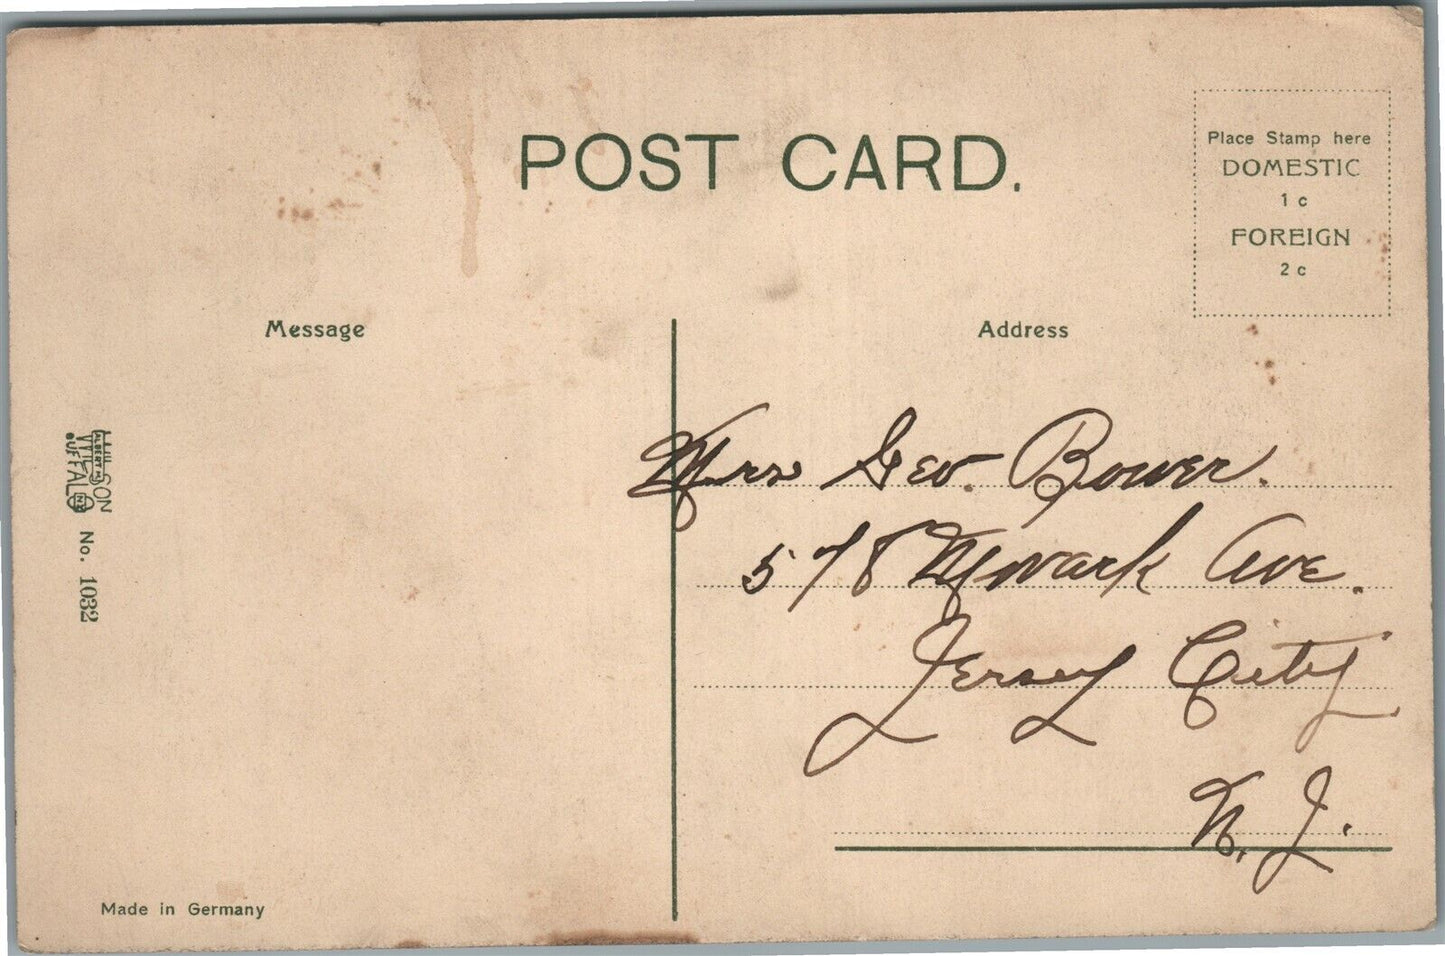 POST CARD.
Place Stamp here
DOMESTIC
1 c
FOREIGN
2 c
Message
Address
Mrs Geo. Bower.
578 Newark Ave.
Jersey City
N. J.
WILSON
BUFFALO
No. 1032
Made in Germany